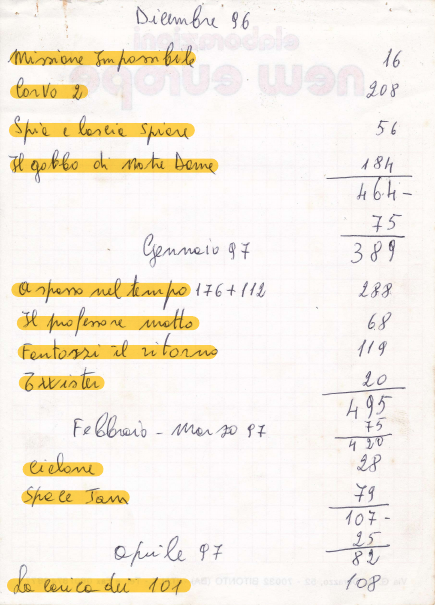 Dicembre 96
Missione Impossibile 16
Corvo 2 208
Spia e lascia Spiare 56
Il gobbo di Notre Dame 184
464-
75
Gennaio 97 389
A spasso nel tempo 176+112 288
Il professore matto 68
Fantozzi il ritorno 119
Twister 20
495
75
Febbraio - Marzo 97 420
Ciclone 28
Space Jam 79
107-
25
Aprile 97 82
La carica dei 101 108
elaborazioni
new europa